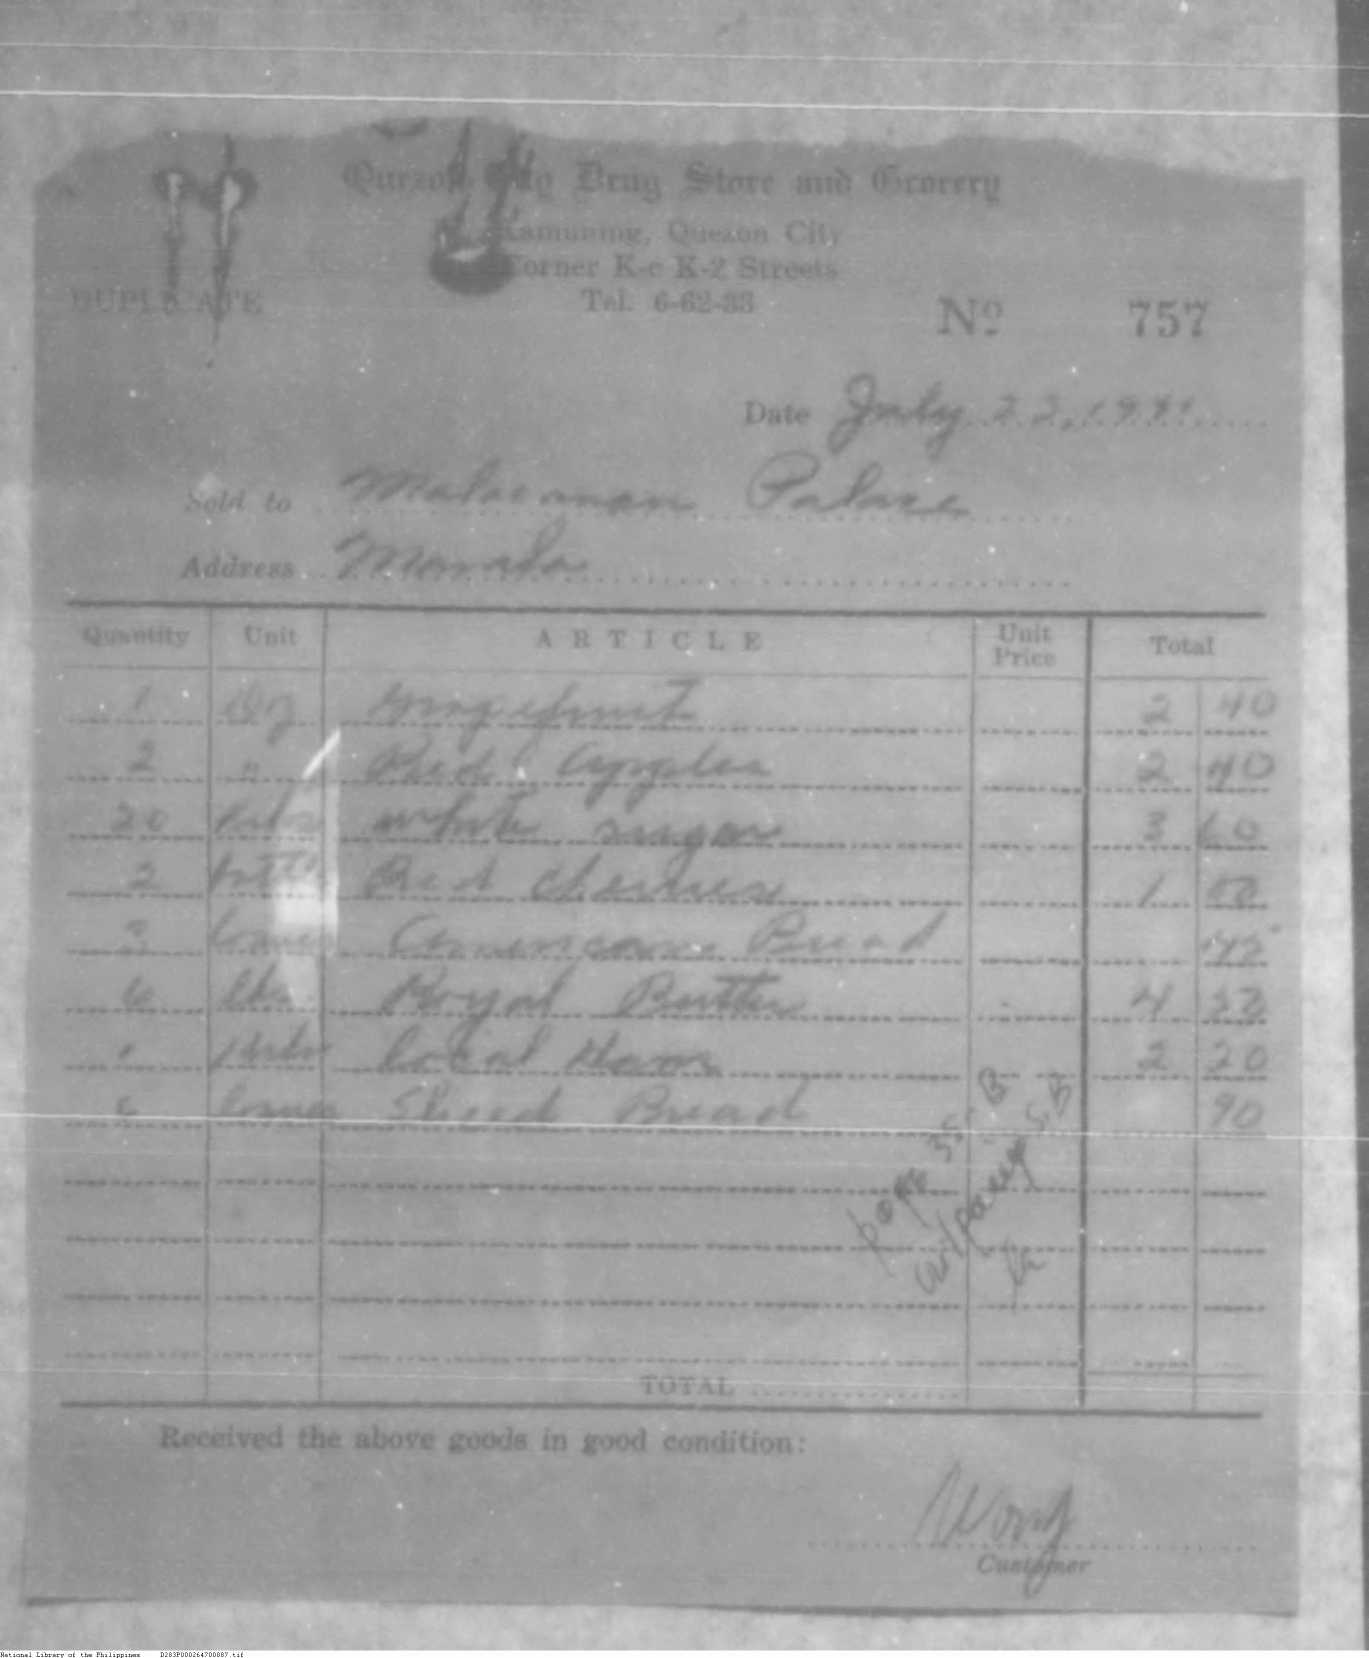 Quezon City Drug Store and Grocery
Kamuning, Quezon City
Corner K-c K-2 Streets
DUPLICATE
Tel. 6-62-33
Nº 757
Date July 22, 1941
Sold to Malacanan Palace
Address Manila
Quantity Unit ARTICLE Unit Price Total
1 Dz Grapefruit 2 40
2 " Red Apples 2 40
20 kilos white sugar 3 60
2 botts Red cherries 1 00
3 loaves American Bread 45
6 lbs. Royal Butter 4 50
kilo local Ham 2 20
6 loaves Sliced Bread 90
page 35- B
S.B
TOTAL
Received the above goods in good condition:
Wong
Customer
National Library of the Philippines D283P000264700087.tif